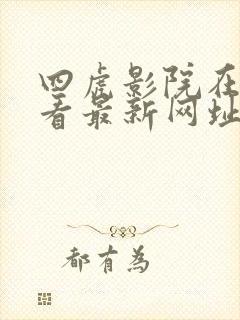 四虎影院在
看最新网址
都有為